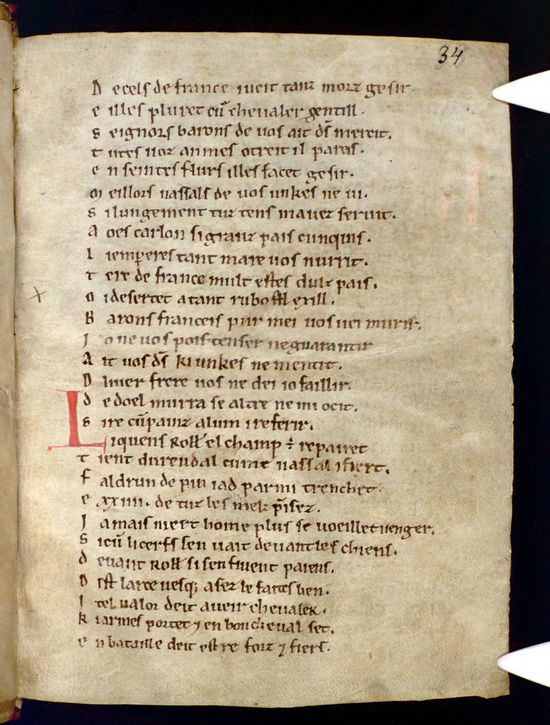 34
D e cels de france iueit tanz morz gesir.
e illes pluret cū cheualer gentill.
s eignors barons de uos ait d̄s mercit.
t utes uoz anmes otreit il pareis.
e n seintes flurs il les facet gesir.
M eillors uassals de uos unkes ne ui.
s i lungement tuz tens mauez seruit.
A oes carlon si granz pais cunquis.
l i emperes tant mare uos nurrit.
t ere de france mult estes dulz pais.
o i desertet a tant rubostl exill.
B arons franceis pur mei uos uei murir.
J o ne uos pois tenser ne guarantir
A it uos d̄s ki unkes ne mentit.
O liuer frere uos ne dei io faillir.
d e doel murra se altre ne mi ocit.
s ire cūpainz alum i referir.
L i quens Roll̄ el champ ē repairet
t ient durendal cume uassal i fiert.
f aldrun de pui i ad par mi trenchet.
e .xxiiii. de tuz les melz p̄isez.
J amais niert home plus se uoeillet uenger.
S i cū li cerfs sen uait deuant les chiens.
d euant Roll̄ si sen fuient paiens.
D ist larceuesq; asez le faites ben.
I tel ualor deit aueir cheualer.
k i armes portet ⁊ en bon cheual set.
e n bataille deit estre forz ⁊ fiers.